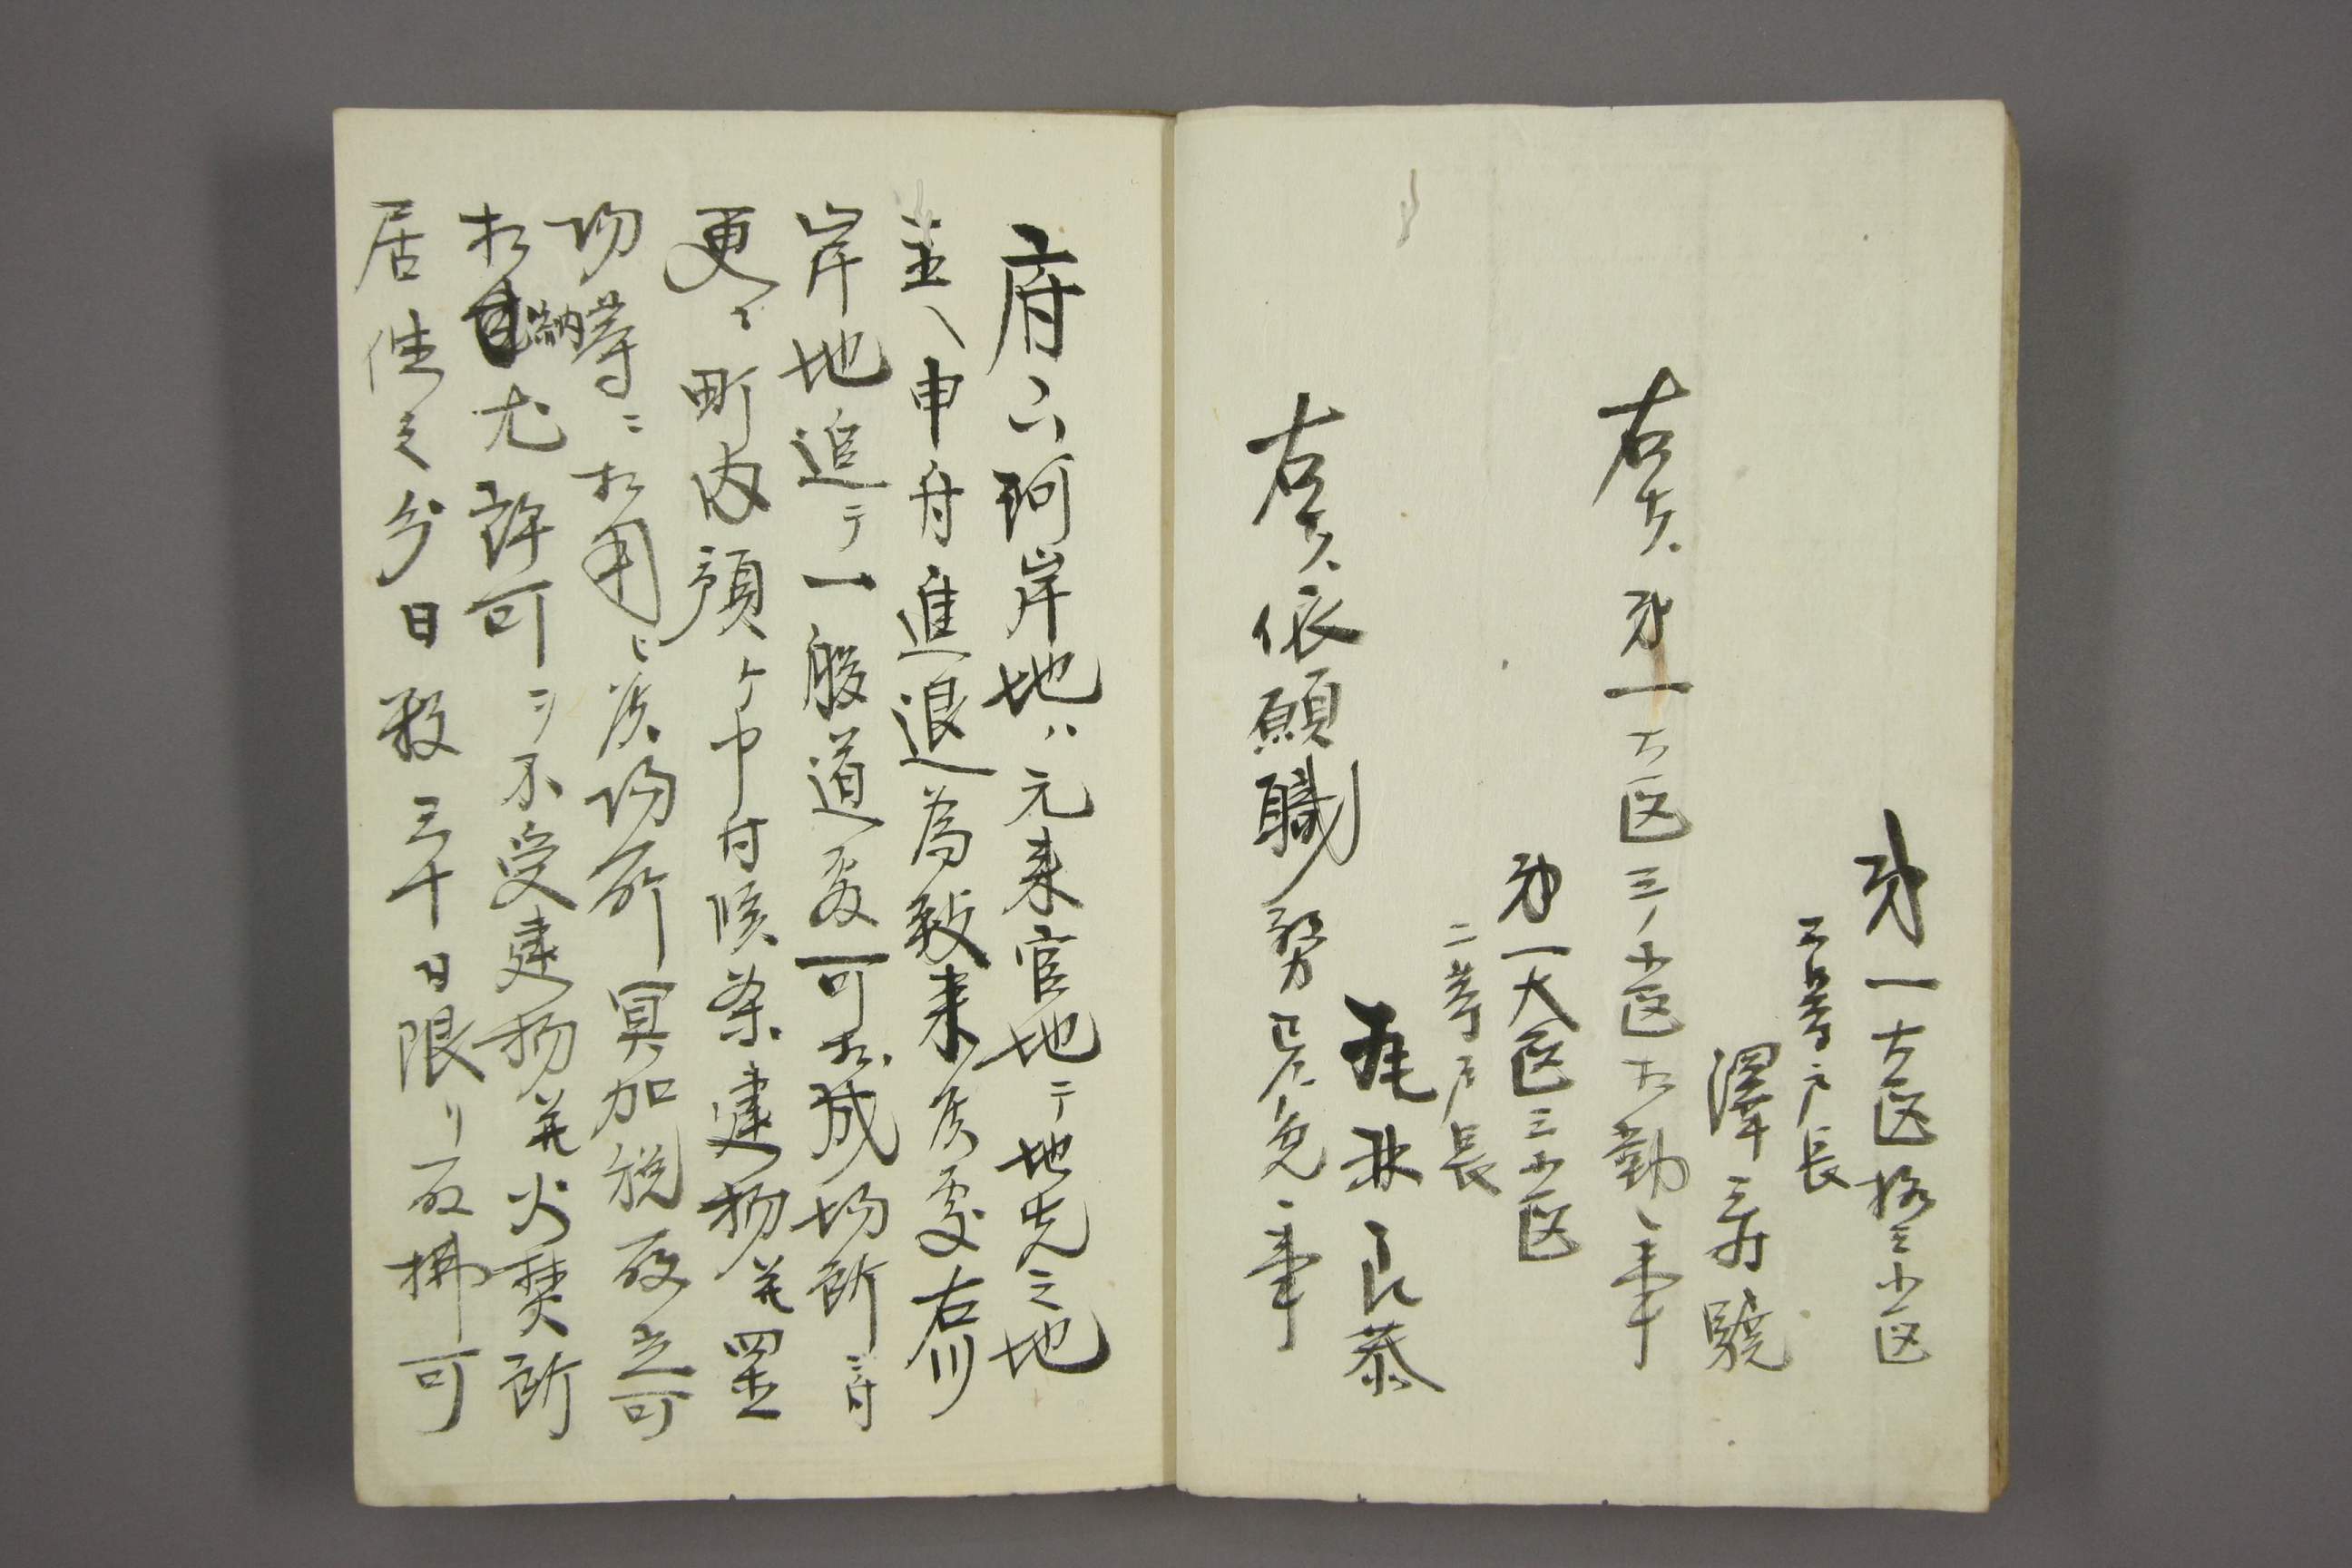 第一大区拾三小区
二等戸長
澤三郎驍
右ハ第一大区三ノ小区相勤候事
第一大区三小区
二等戸長
良恭
右ハ依願職務差免候事
府下河岸地ハ元来官地ニテ地先之地
主ヘ申付進退為致来候処右川
岸地追テ一般道敷可相成場所ニ付
更ニ町内預ケ申付候条建物并置
場等ニ相用ヒ候場所冥加税取立可
相納尤許可ヲ不受建物并火焚所
居住之分日数三十日限リ取払可